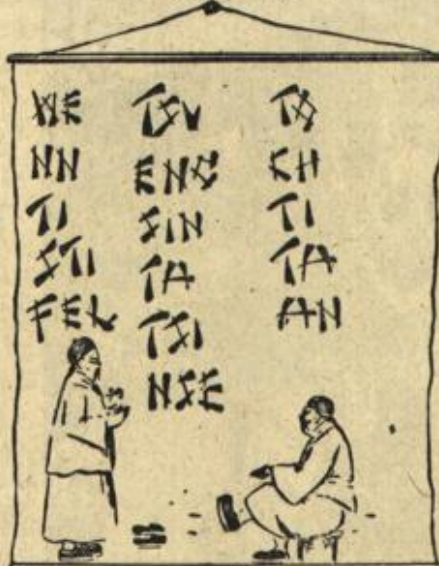 WE
NN
TI
STI
FEL
TSU
ENG
SIN
TA
TSI
NSE
TO
CH
TI
TA
AN